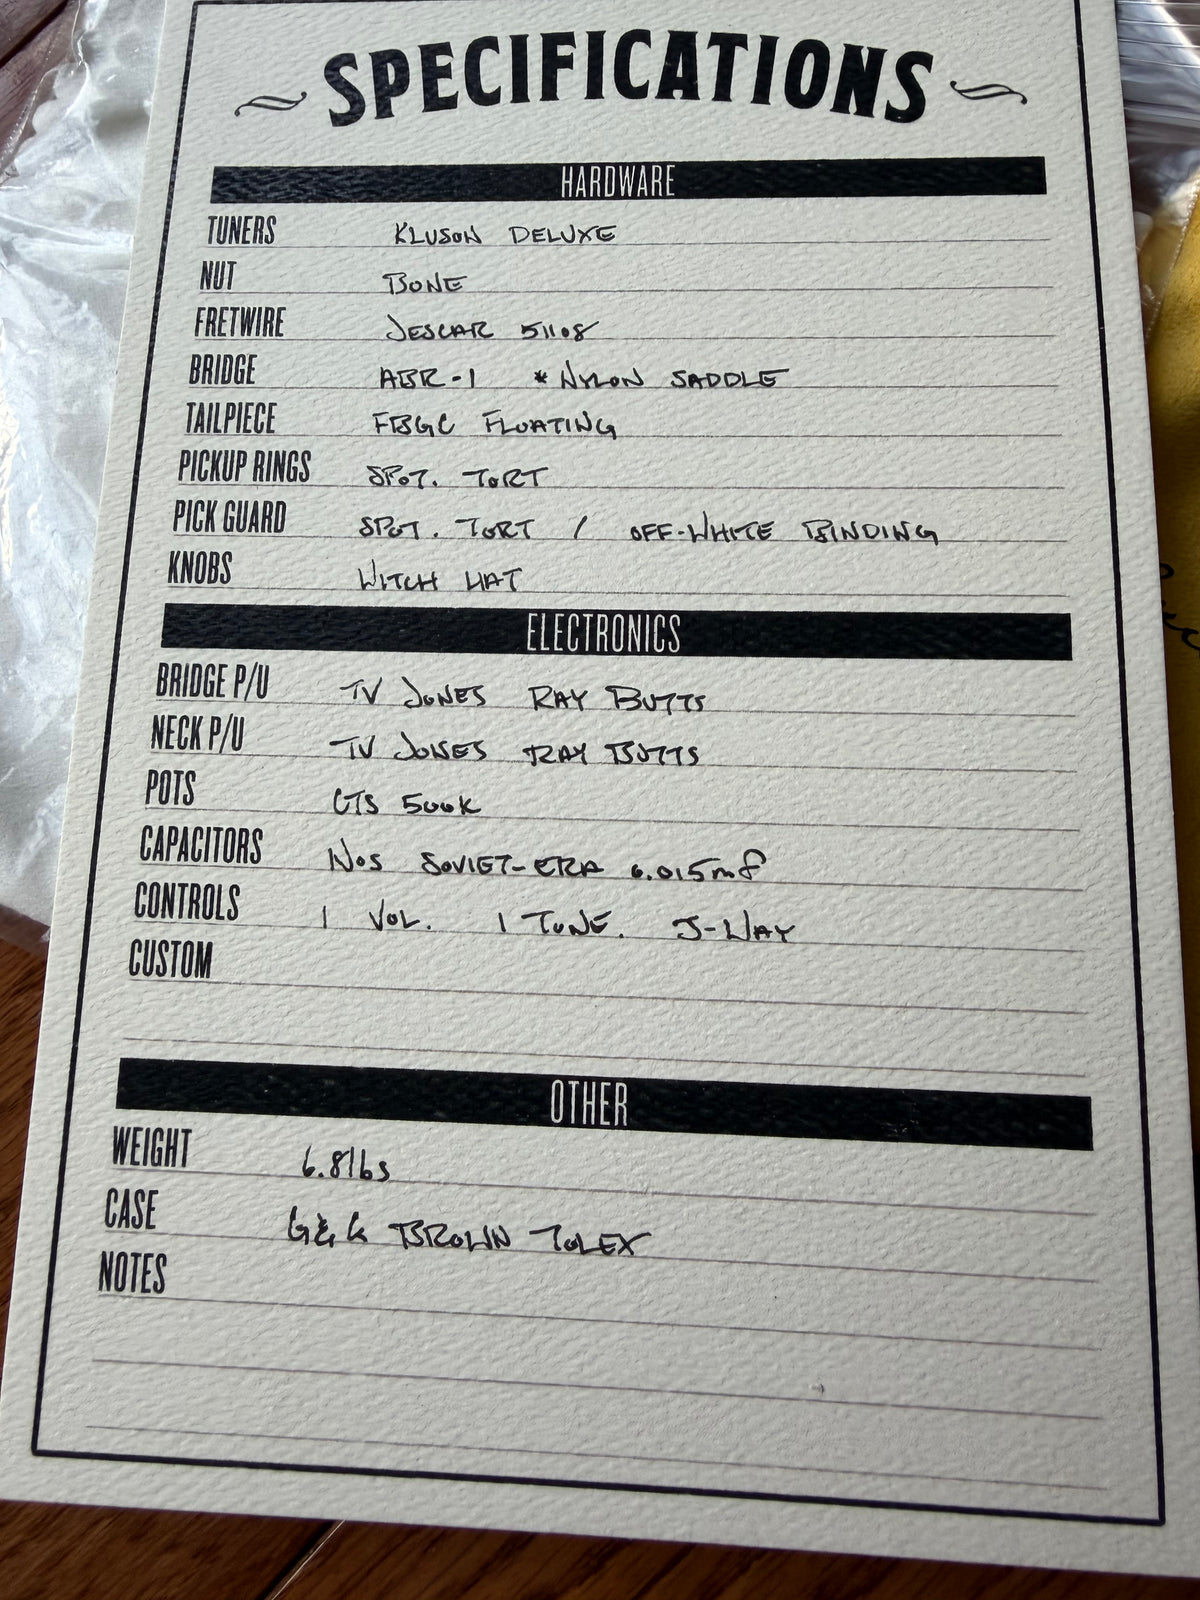 SPECIFICATIONS
HARDWARE
TUNERS KLUSON DELUXE
NUT BONE
FRETWIRE JESCAR 51108
BRIDGE ABR-1 * NYLON SADDLE
TAILPIECE FBGC FLOATING
PICKUP RINGS SPOT. TORT
PICK GUARD SPOT. TORT / OFF-WHITE BINDING
KNOBS WITCH HAT
ELECTRONICS
BRIDGE P/U TV JONES RAY BUTTS
NECK P/U TV JONES RAY BUTTS
POTS CTS 500K
CAPACITORS NOS SOVIET-ERA 0.015mf
CONTROLS 1 VOL. 1 TONE. 3-WAY
CUSTOM
OTHER
WEIGHT 6.8lbs
CASE G&G BROWN TOLEX
NOTES